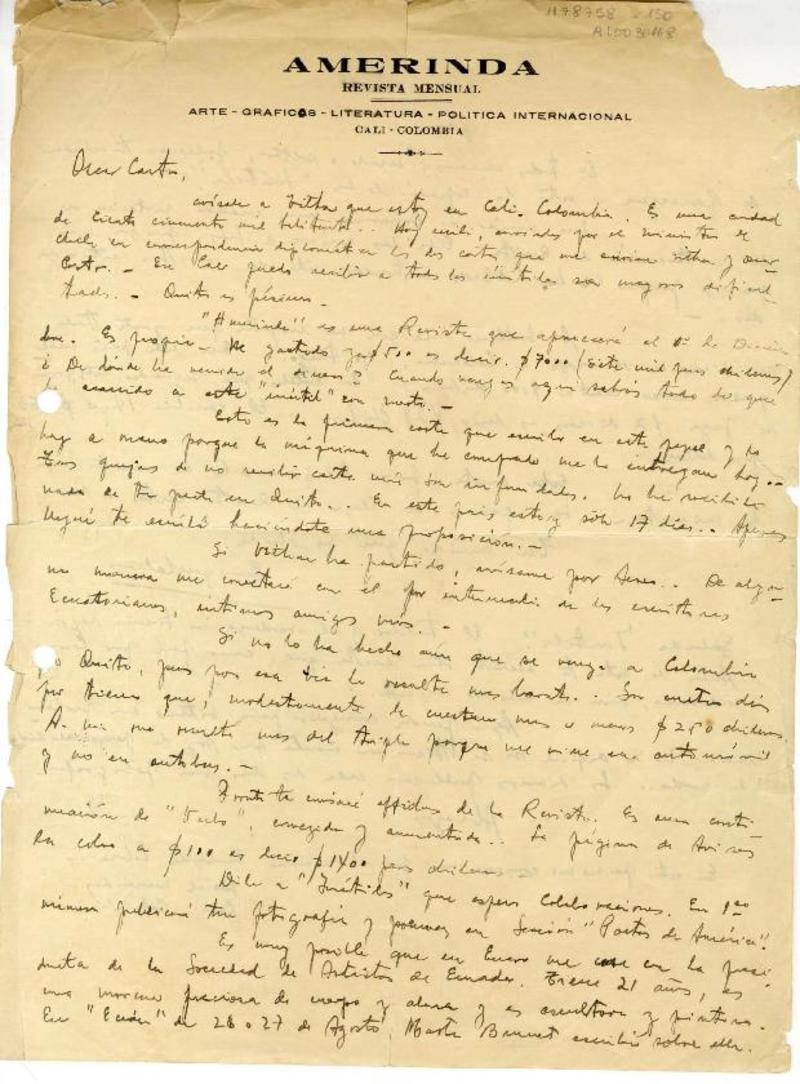 1178758 - 150
AMERINDA
REVISTA MENSUAL
ARTE - GRAFICOS - LITERATURA - POLITICA INTERNACIONAL
CALI - COLOMBIA
Oscar Castro,
avísale a que estoy en Cali. Colombia. Es una ciudad
de ciento cincuenta mil habitantes.. Hoy recibí, enviadas por el ministro de
Chile en correspondencia diplomática las dos cartas que me envían y Oscar
Castro. - En Cali puedo recibir a todos los inútiles sin mayores dificul-
tades. - Quito es pésimo. -
"Amerinda" es una Revista que aparecerá el 1º de Diciem
bre. Es propia - He gastado ya $500 es decir. $7000 (siete mil pesos chilenos)
¿De dónde ha venido el dinero? Cuando vengas aquí sabrás todo lo que
ha ocurrido a este "inútil" con suerte. -
Esta es la primera carta que escribo en este papel y lo
hago a mano porque la máquina que he comprado me la entregan hoy. -
Tus quejas de no recibir carta mía son infundadas. No he recibido
nada de tu parte en Quito.. En este país estoy sólo 17 días.. Apenas
llegué te escribí haciéndote una proposición. -
Si ha partido, avísame por Aereo.. De algu-
na manera me conectaré con el por intermedio de los escritores
Ecuatorianos, íntimos amigos míos. -
Si no lo ha hecho aun que se venga a Colombia
por Quito, pues por esa vía le resulta mas barato.. Son cuatro días
por tierra que, modestamente, le cuestan mas o menos $250 chilenos.
A mi me resultó mas del triple porque me vine en automóvil
y no en autobus. -
Pronto te enviaré affiches de la Revista. Es una conti
nuación de , corregida y aumentada.. La página de Avisos
la cobro a $100 es decir $1400 pesos chilenos
Dile a "Inútiles" que espero Colaboraciones. En 1er
número publicaré tu fotografía y poemas en Sección "Poetas de América".
Es muy posible que en Enero me case con la presi
denta de la Sociedad de Artistas de Ecuador. Tiene 21 años, es
una morena preciosa de cuerpo y alma y es escultora y pintora.
En "Ecran" de 26 o 27 de Agosto, Marta Brunet escribió sobre ella.